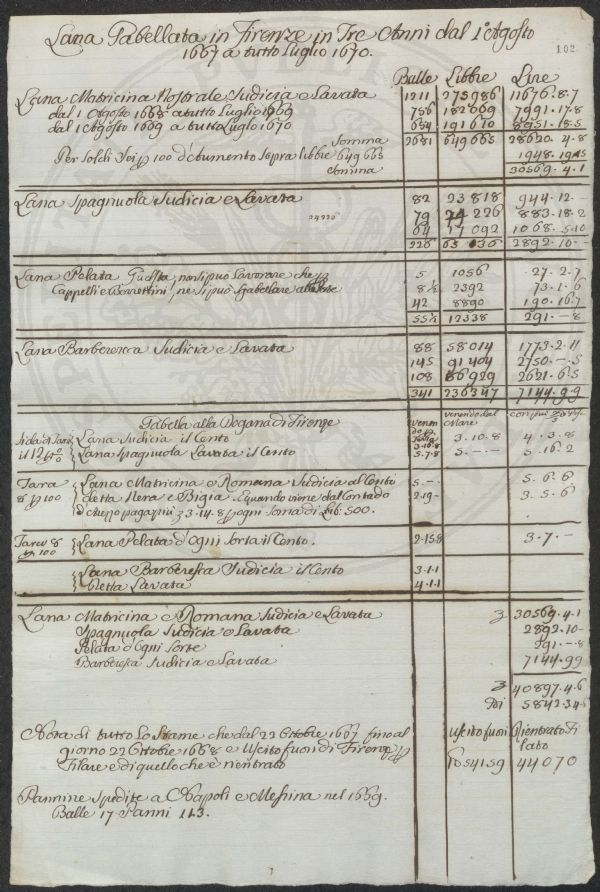 Lana Gabellata in Firenze in Tre Anni dal 1º Agosto
1667 a tutto Luglio 1670.
102
Balle Libbre Lire
Lana Matricina Nostrale Sudicia e Lavata 1211 275986 11676.8.7
dal 1 Agosto 1668 a tutto Luglio 1669 786 182869 7991.17.8
dal 1 Agosto 1669 a tutto Luglio 1670 684 191610 8951.18.5
Somma 2681 649665 28620.4.8
Per Soldi Sei p 100 d'Aumento sopra libbre 649665 1948.19.5
Somma 30569.4.1
Lana Spagnuola Sudicia e Lavata 82 23818 944.12.-
79 24226 883.18.2
64 17092 1068.5.10
226 65036 2892.10.-
Lana Pelata non si può Lavorare che p 5 1056 27.2.7
Cappelli e Berrettini, ne si può Gabellare 8½ 2392 73.1.6
42 8890 190.16.7
55½ 12338 291.-8
Lana Barberesca Sudicia e Lavata 88 58014 1773.2.11
145 91404 2750.-.5
108 86929 2621.6.5
341 236347 7144.9.9
Gabella alla Dogana di Firenze venendo dal Mare
Lana Sudicia il Cento 3.16.8 3.10.8 4.3.8
il 12 p%
Lana Spagnuola Lavata il Cento 5.7.8 5.-.- 5.16.2
Tara Lana Matricina e Romana Sudicia al Cento 5.-- 5.6.6
8 p 100 detta Nera e Bigia. E quando viene dal Contado 2.19- 3.5.6
3.14.8 p ogni Soma di Lib: 500.
Tara 8
p 100 Lana Pelata d'Ogni Sorta il Cento. 2.15.8 3.7.-
Lana Barberesca Sudicia il Cento 3.1.1
Detta Lavata 4.1.1
Lana Matricina e Romana Sudicia e Lavata 30569.4.1
Spagnuola Sudicia e Lavata 2892.10-
Pelata d'Ogni Sorte 291.-8
Barberesca Sudicia e Lavata 7144.99
40897.4.6
Di 5842.3.4.6
Nota di tutto Lo Stame che dal 22 Ottobre 1667 fino al Uscito fuori Rientrato Fi
giorno 22 Ottobre 1668 è Uscito fuori di Firenze p lato
Filare e di quello che è rientrato 44070
Pannine Spedite a Napoli e Messina nel 1669.
Balle 17 Panni 113.